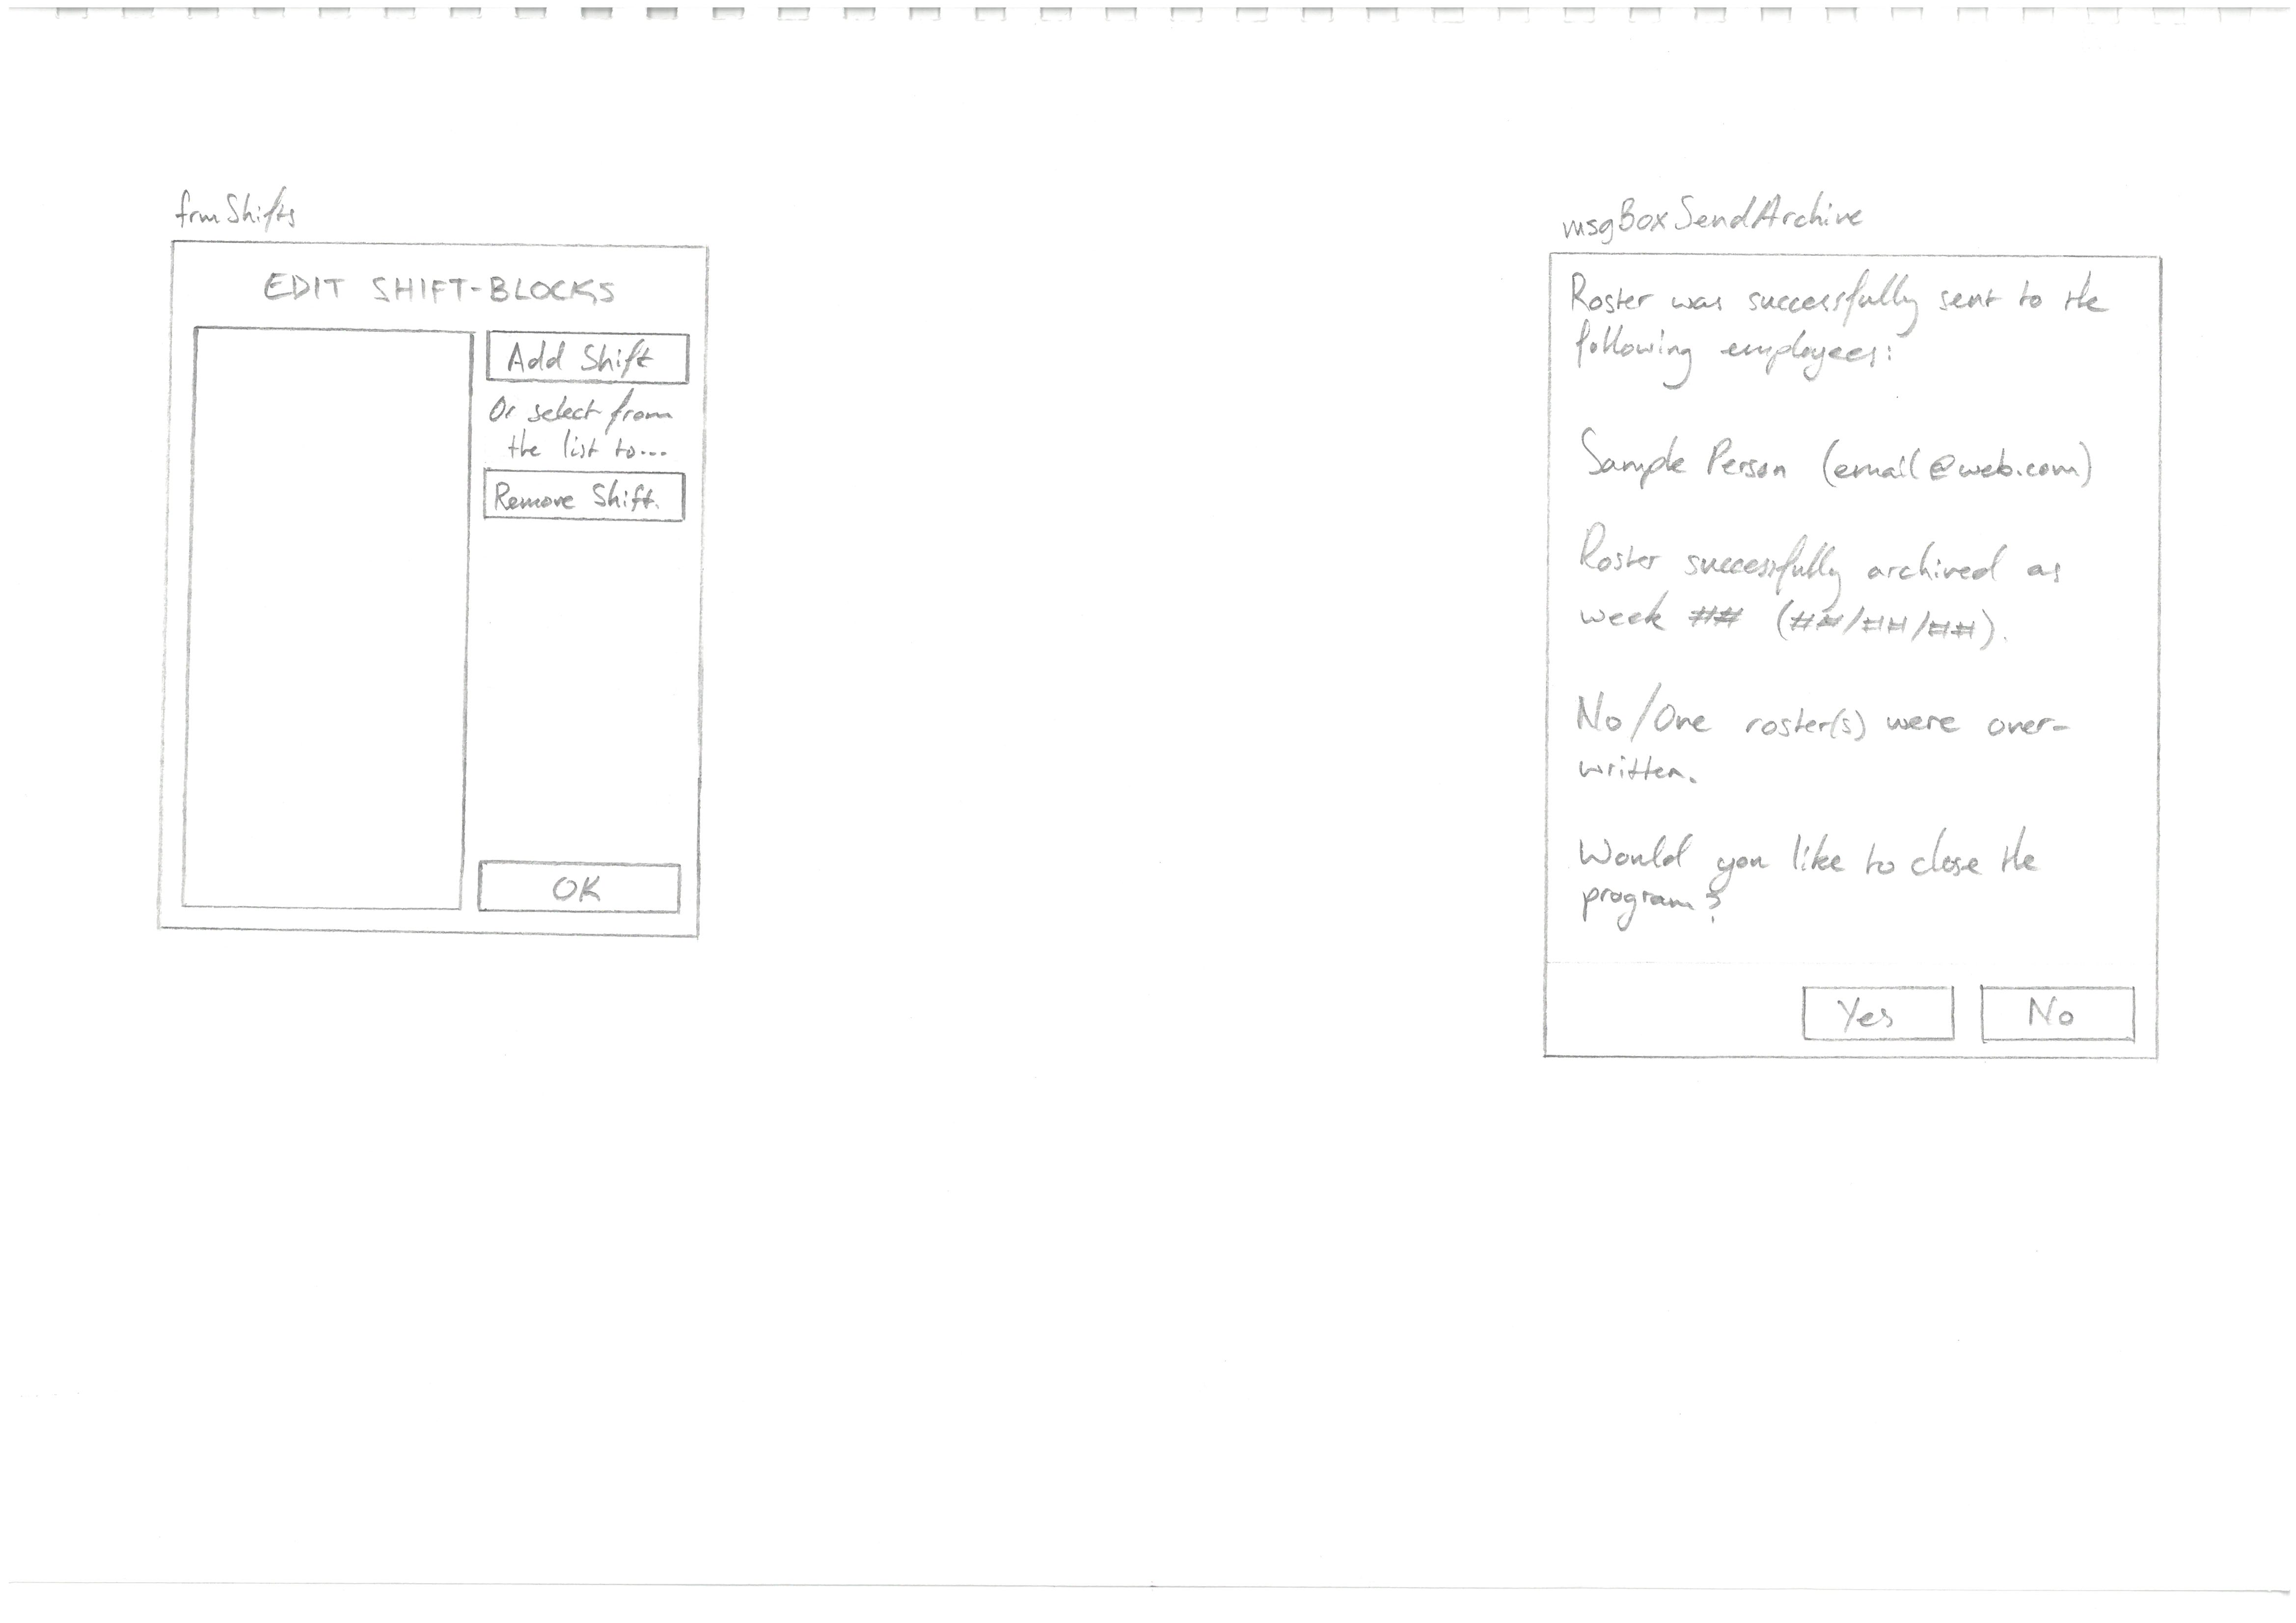 frmShifts
EDIT SHIFT-BLOCKS
Add Shift
Or select from
the list to...
Remove Shift.
OK
msgBoxSendArchive
Roster was successfully sent to the
following employees:
Sample Person (email@web.com)
Roster successfully archived as
week ## (##/##/##).
No/One roster(s) were over-
written.
Would you like to close the
program?
Yes
No